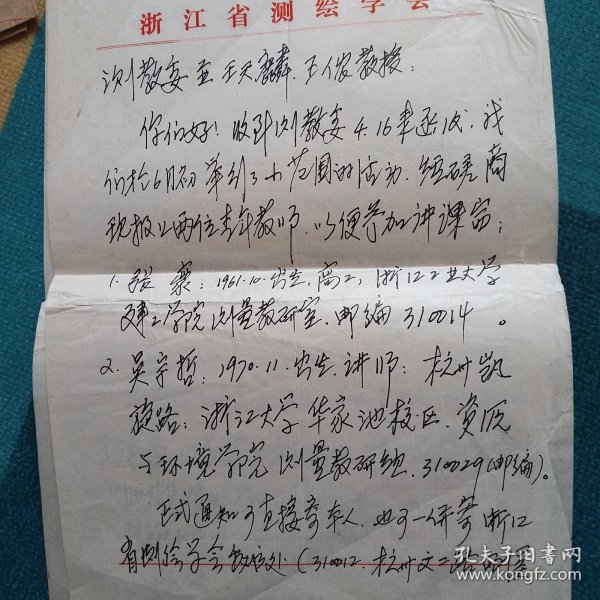 浙江省测绘学会
测教委 王天麟、王侬教授：
你们好！收到测教委4.16来函后，我
们于6月初举行了小范围的活动，经磋商
现报上两位青年教师，以便参加讲课
1. 张 ：1961.10.出生，高工，浙江工业大学
建工学院测量教研室，邮编310014。
2. 吴宇哲：1970.11.出生，讲师；杭州凯
旋路：浙江大学华家池校区，资源
与环境学院测量教研组，310029（邮编）。
正式通知可直接寄本人，也可一并寄浙江
省测绘学会（310012，杭州文二路
孔夫子旧书网
www.kongfz.com